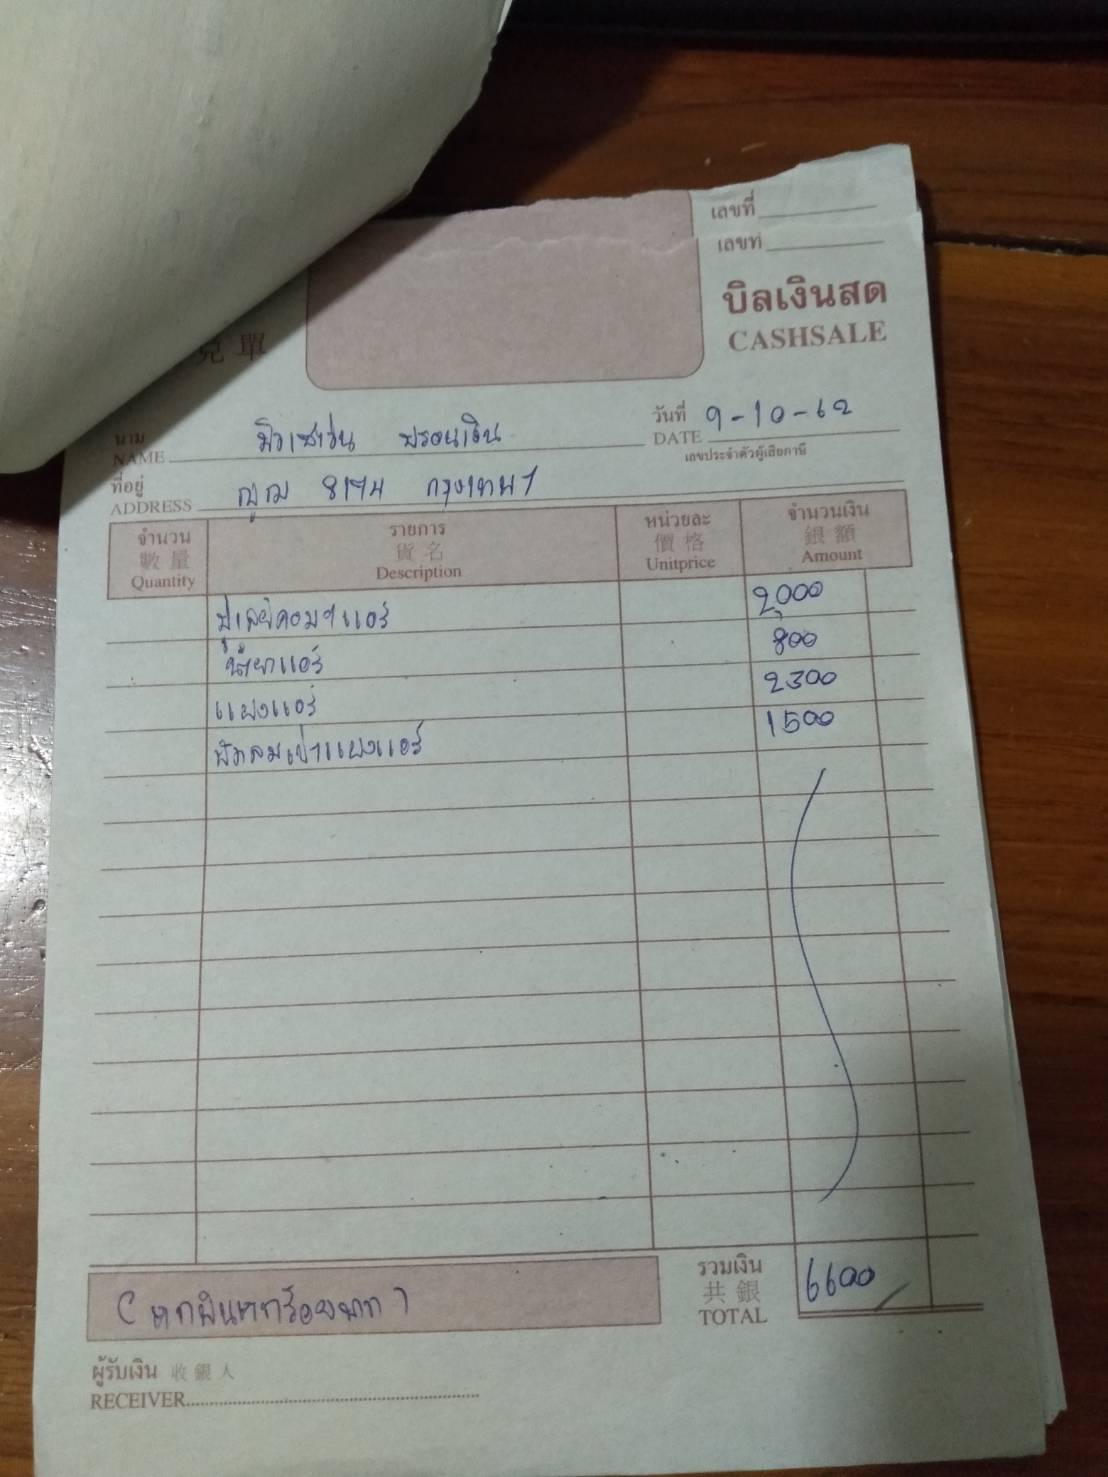 เลขที่
เลขที่
บิลเงินสด
單
CASHSALE
นาม
NAME
วันที่ 9-10-62
DATE
เลขประจำตัวผู้เสียภาษี
ที่อยู่
ADDRESS 8174 กรุงเทพฯ
จำนวน รายการ หน่วยละ จำนวนเงิน
數量 貨名 價格 銀額
Quantity Description Unitprice Amount
มู่เลย์คอมฯแอร์ 2,000
น้ำยาแอร์ 800
แผงแอร์ 2300
พัดลมเป่าแผงแอร์ 1500
รวมเงิน
共銀
TOTAL 6600
(หกพันหกร้อยบาท)
ผู้รับเงิน 收銀人
RECEIVER